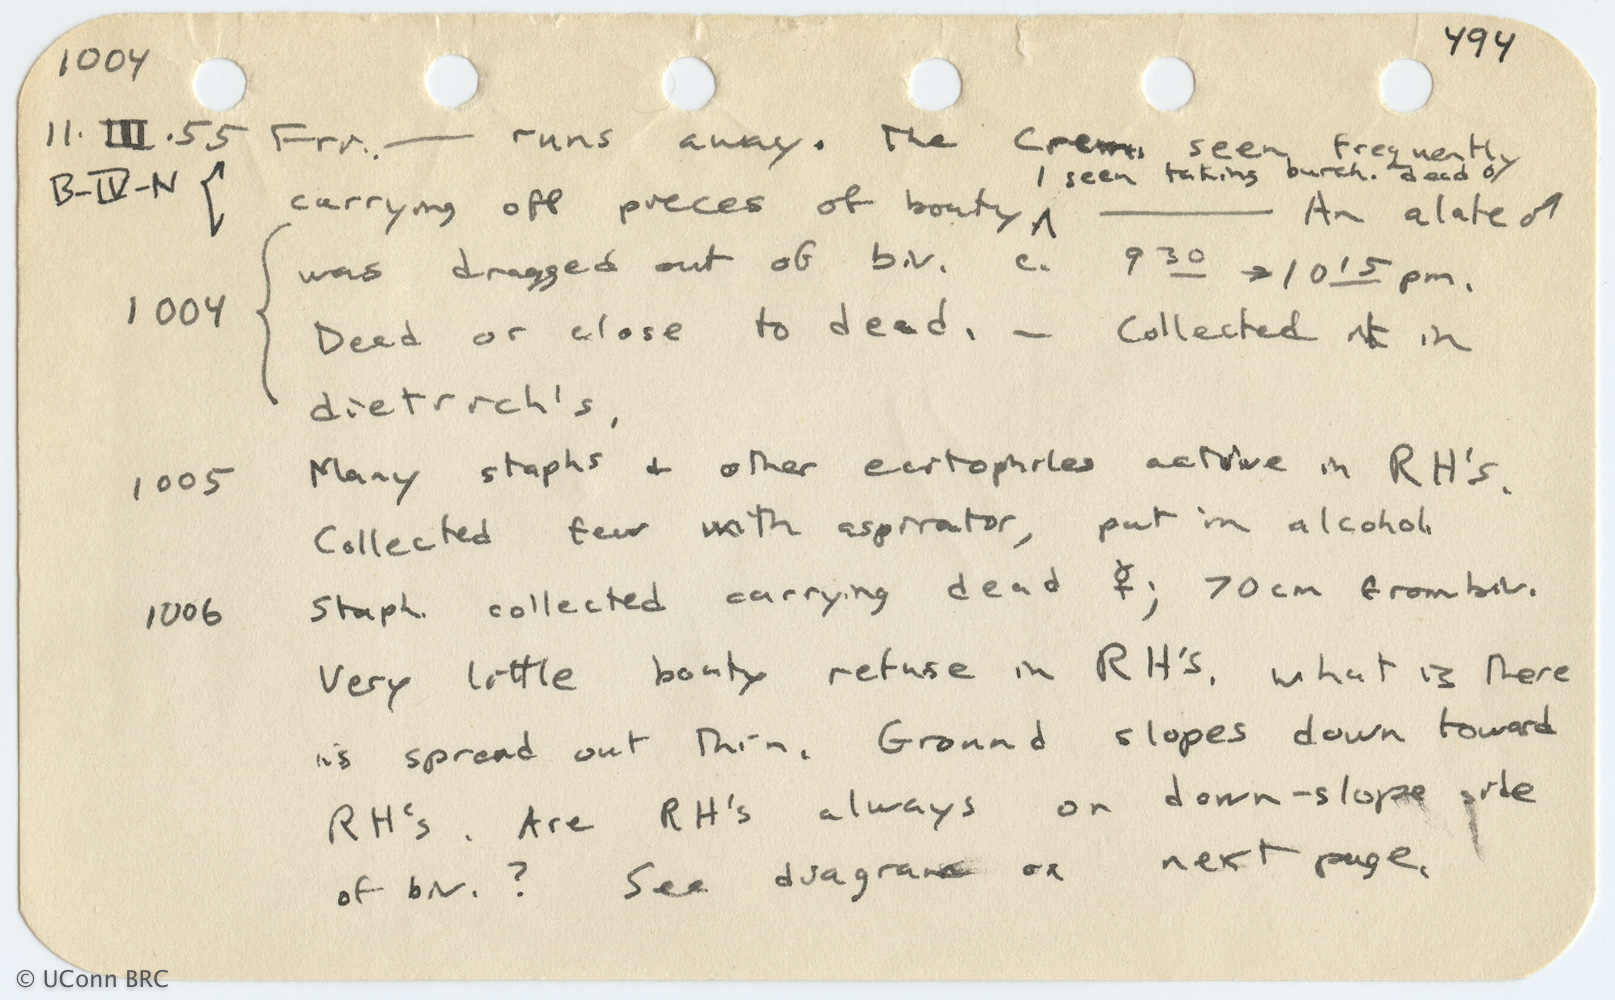 1004 494
11.III.55 Frr. — runs away. The Crem. seen frequently
B-IV-N 1 seen taking burch. dead ☿
carrying off pieces of booty ^ — An alate ♂
was dragged out of biv. c. 9 30 → 10 15 pm.
1004 Dead or close to dead. — Collected it in
dietrich's.
1005 Many staphs + other ectophiles active in RH's.
Collected few with aspirator, put in alcohol.
1006 Staph. collected carrying dead ☿; 70 cm from biv.
Very little booty refuse in RH's, what is there
is spread out thin. Ground slopes down toward
RH's. Are RH's always on down-slope side
of biv.? See diagram on next page.
© UConn BRC